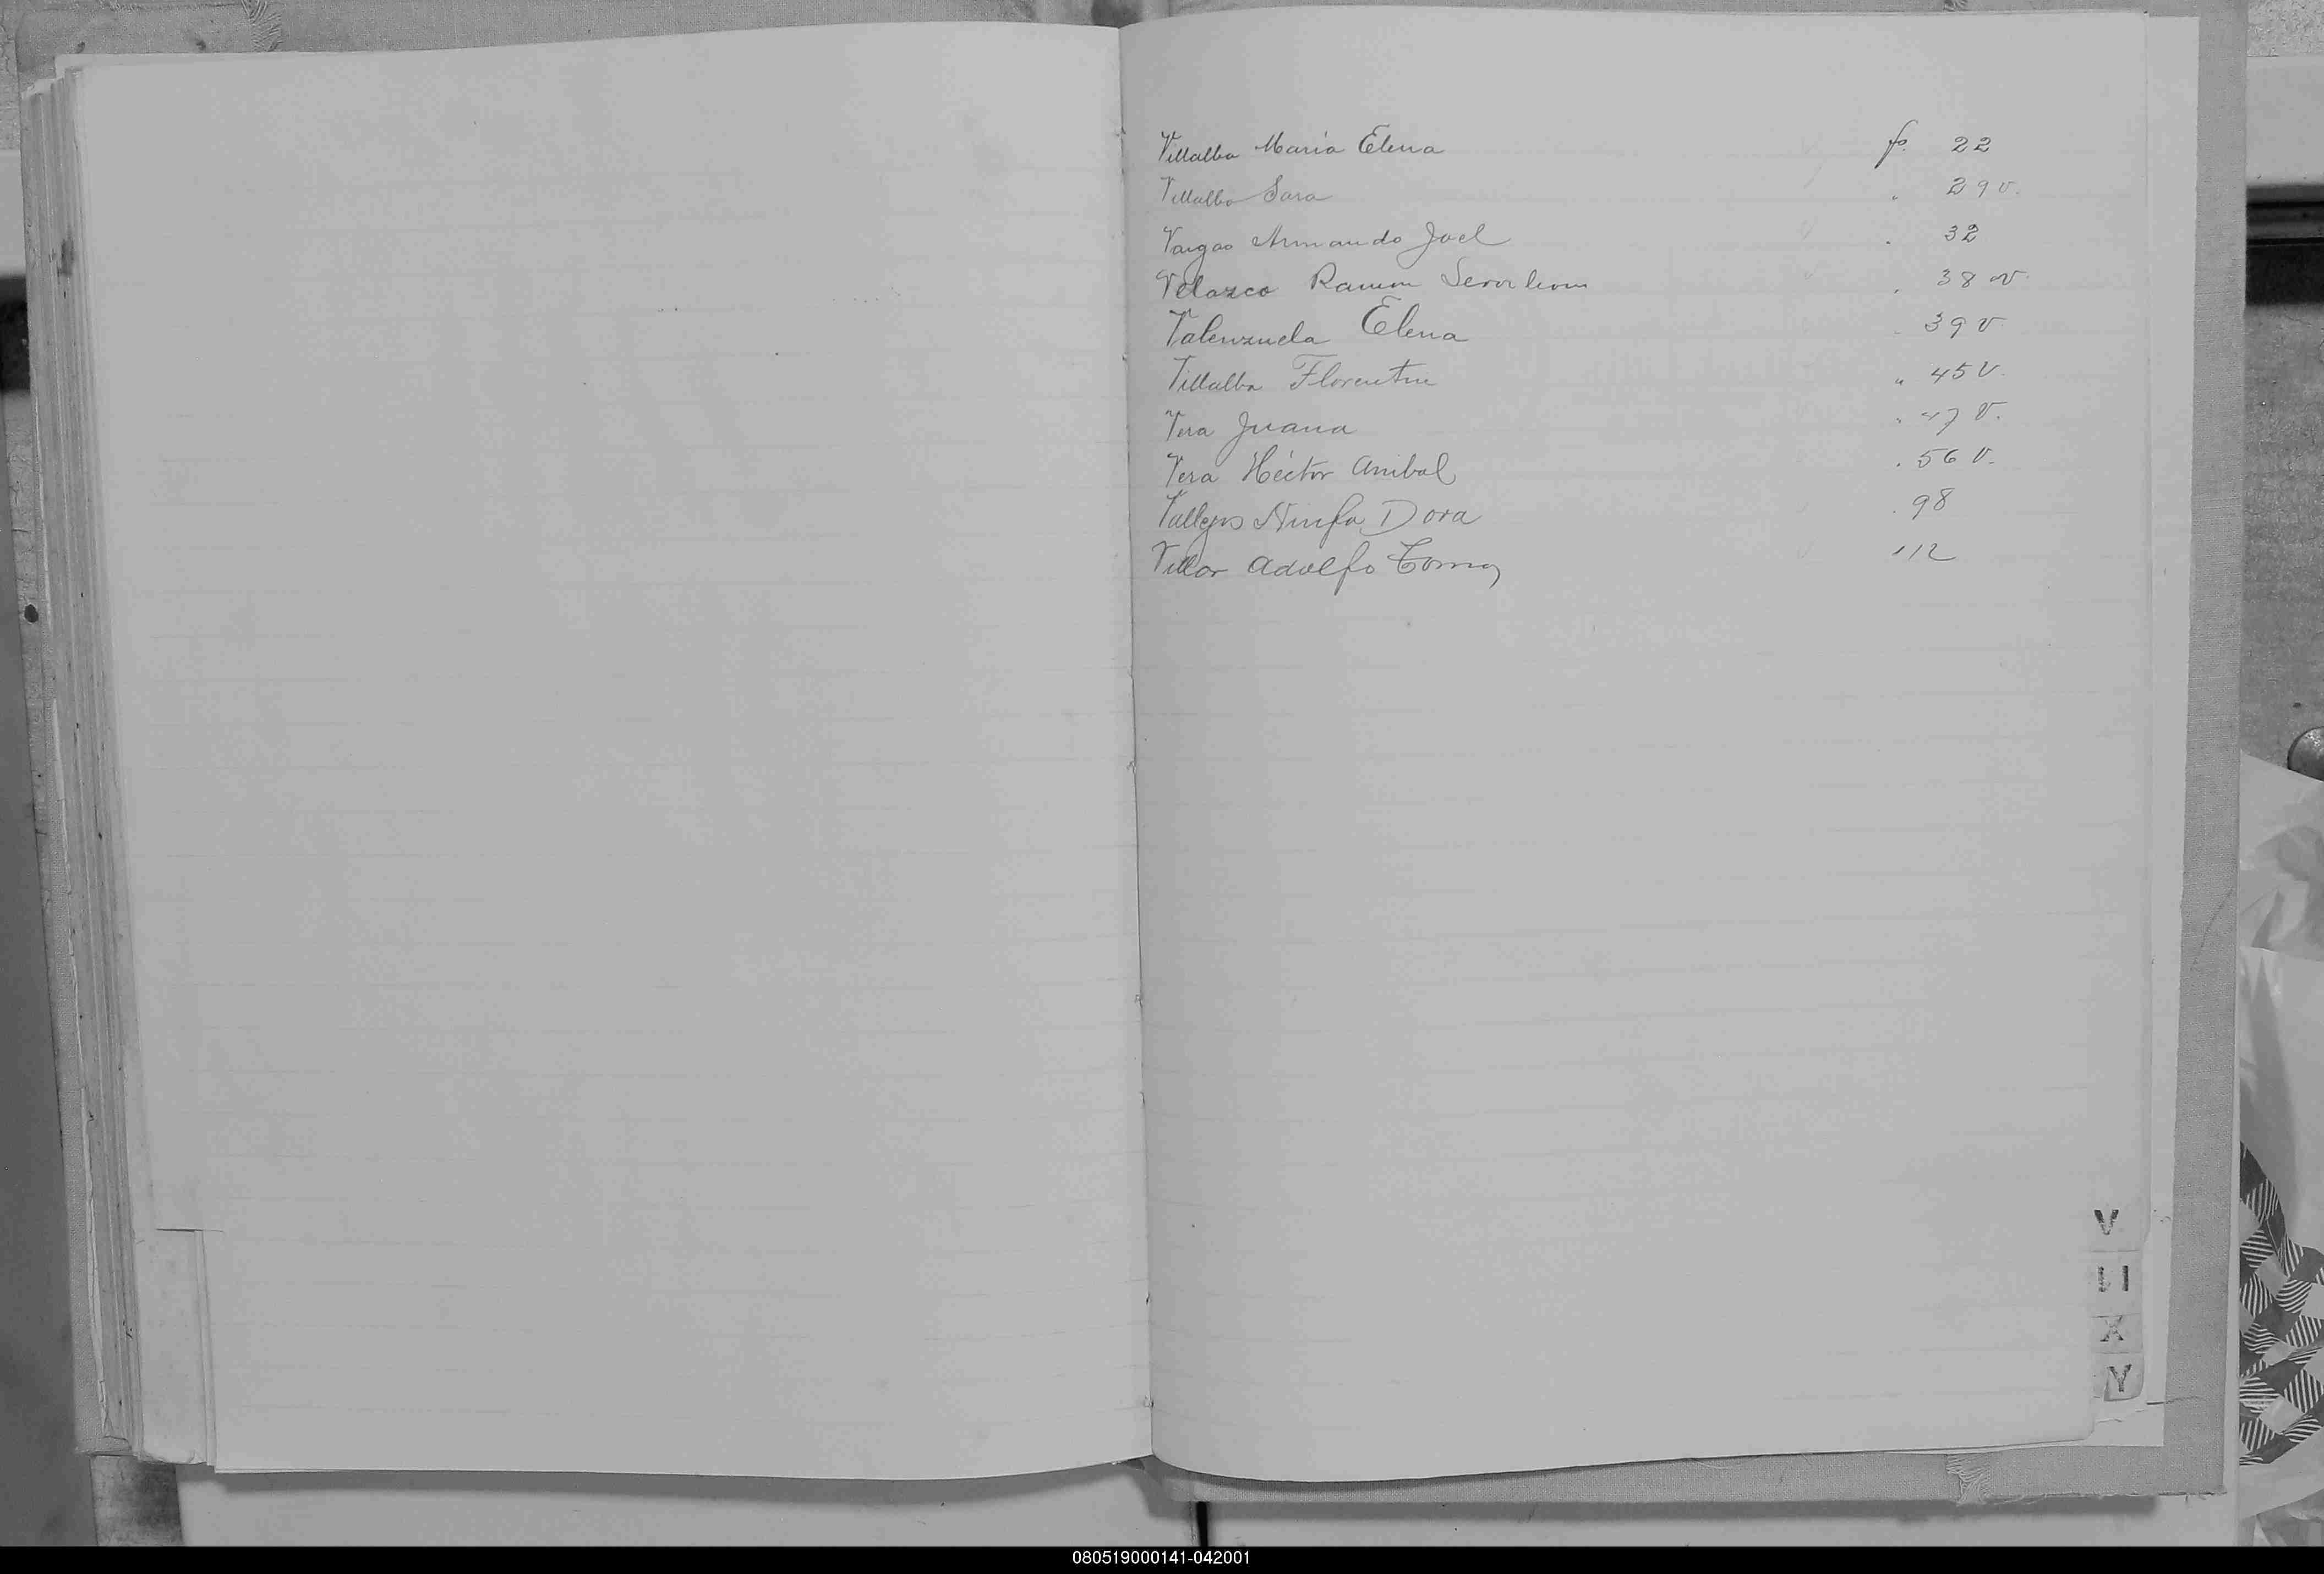 Villalba María Elena fo. 22
Villalba Sara " 29 v.
Vargas Armando Joel " 32
Velazco Ramon " 38 v.
Valenzuela Elena " 39 v.
Villalba Florentin " 45 v.
Vera Juana " 47 v.
Vera Héctor Anibal " 56 v.
Vallejos Ninfa Dora " 98
Villar Adolfo Tomas 112
V
U
X
Y
080519000141-042001